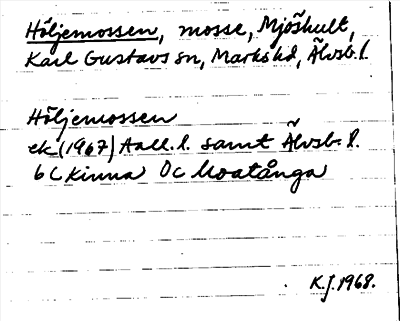 Höljemossen, mosse, Mjöshult,
Karl Gustavs sn, Marks hd, Älvsb. l.
Höljemossen
ek (1967) Aall. l. samt Älvsb. l.
6 C Kinna 0 c Moatånga
K.J. 1968.